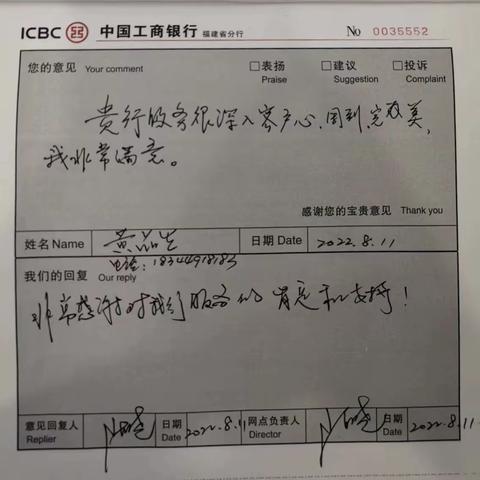 ICBC 中国工商银行 福建省分行 No 0035552
您的意见 Your comment 表扬 Praise 建议 Suggestion 投诉 Complaint
贵行服务很深入客户心、周到、完美,
我非常满意。
感谢您的宝贵意见 Thank you
姓名 Name 黄品生 日期 Date 2022.8.11
电话:18344918183
我们的回复 Our reply
非常感谢对我们服务的肯定和支持!
意见回复人 Replier 日期 Date 2022.8.11 网点负责人 Director 日期 Date 2022.8.11